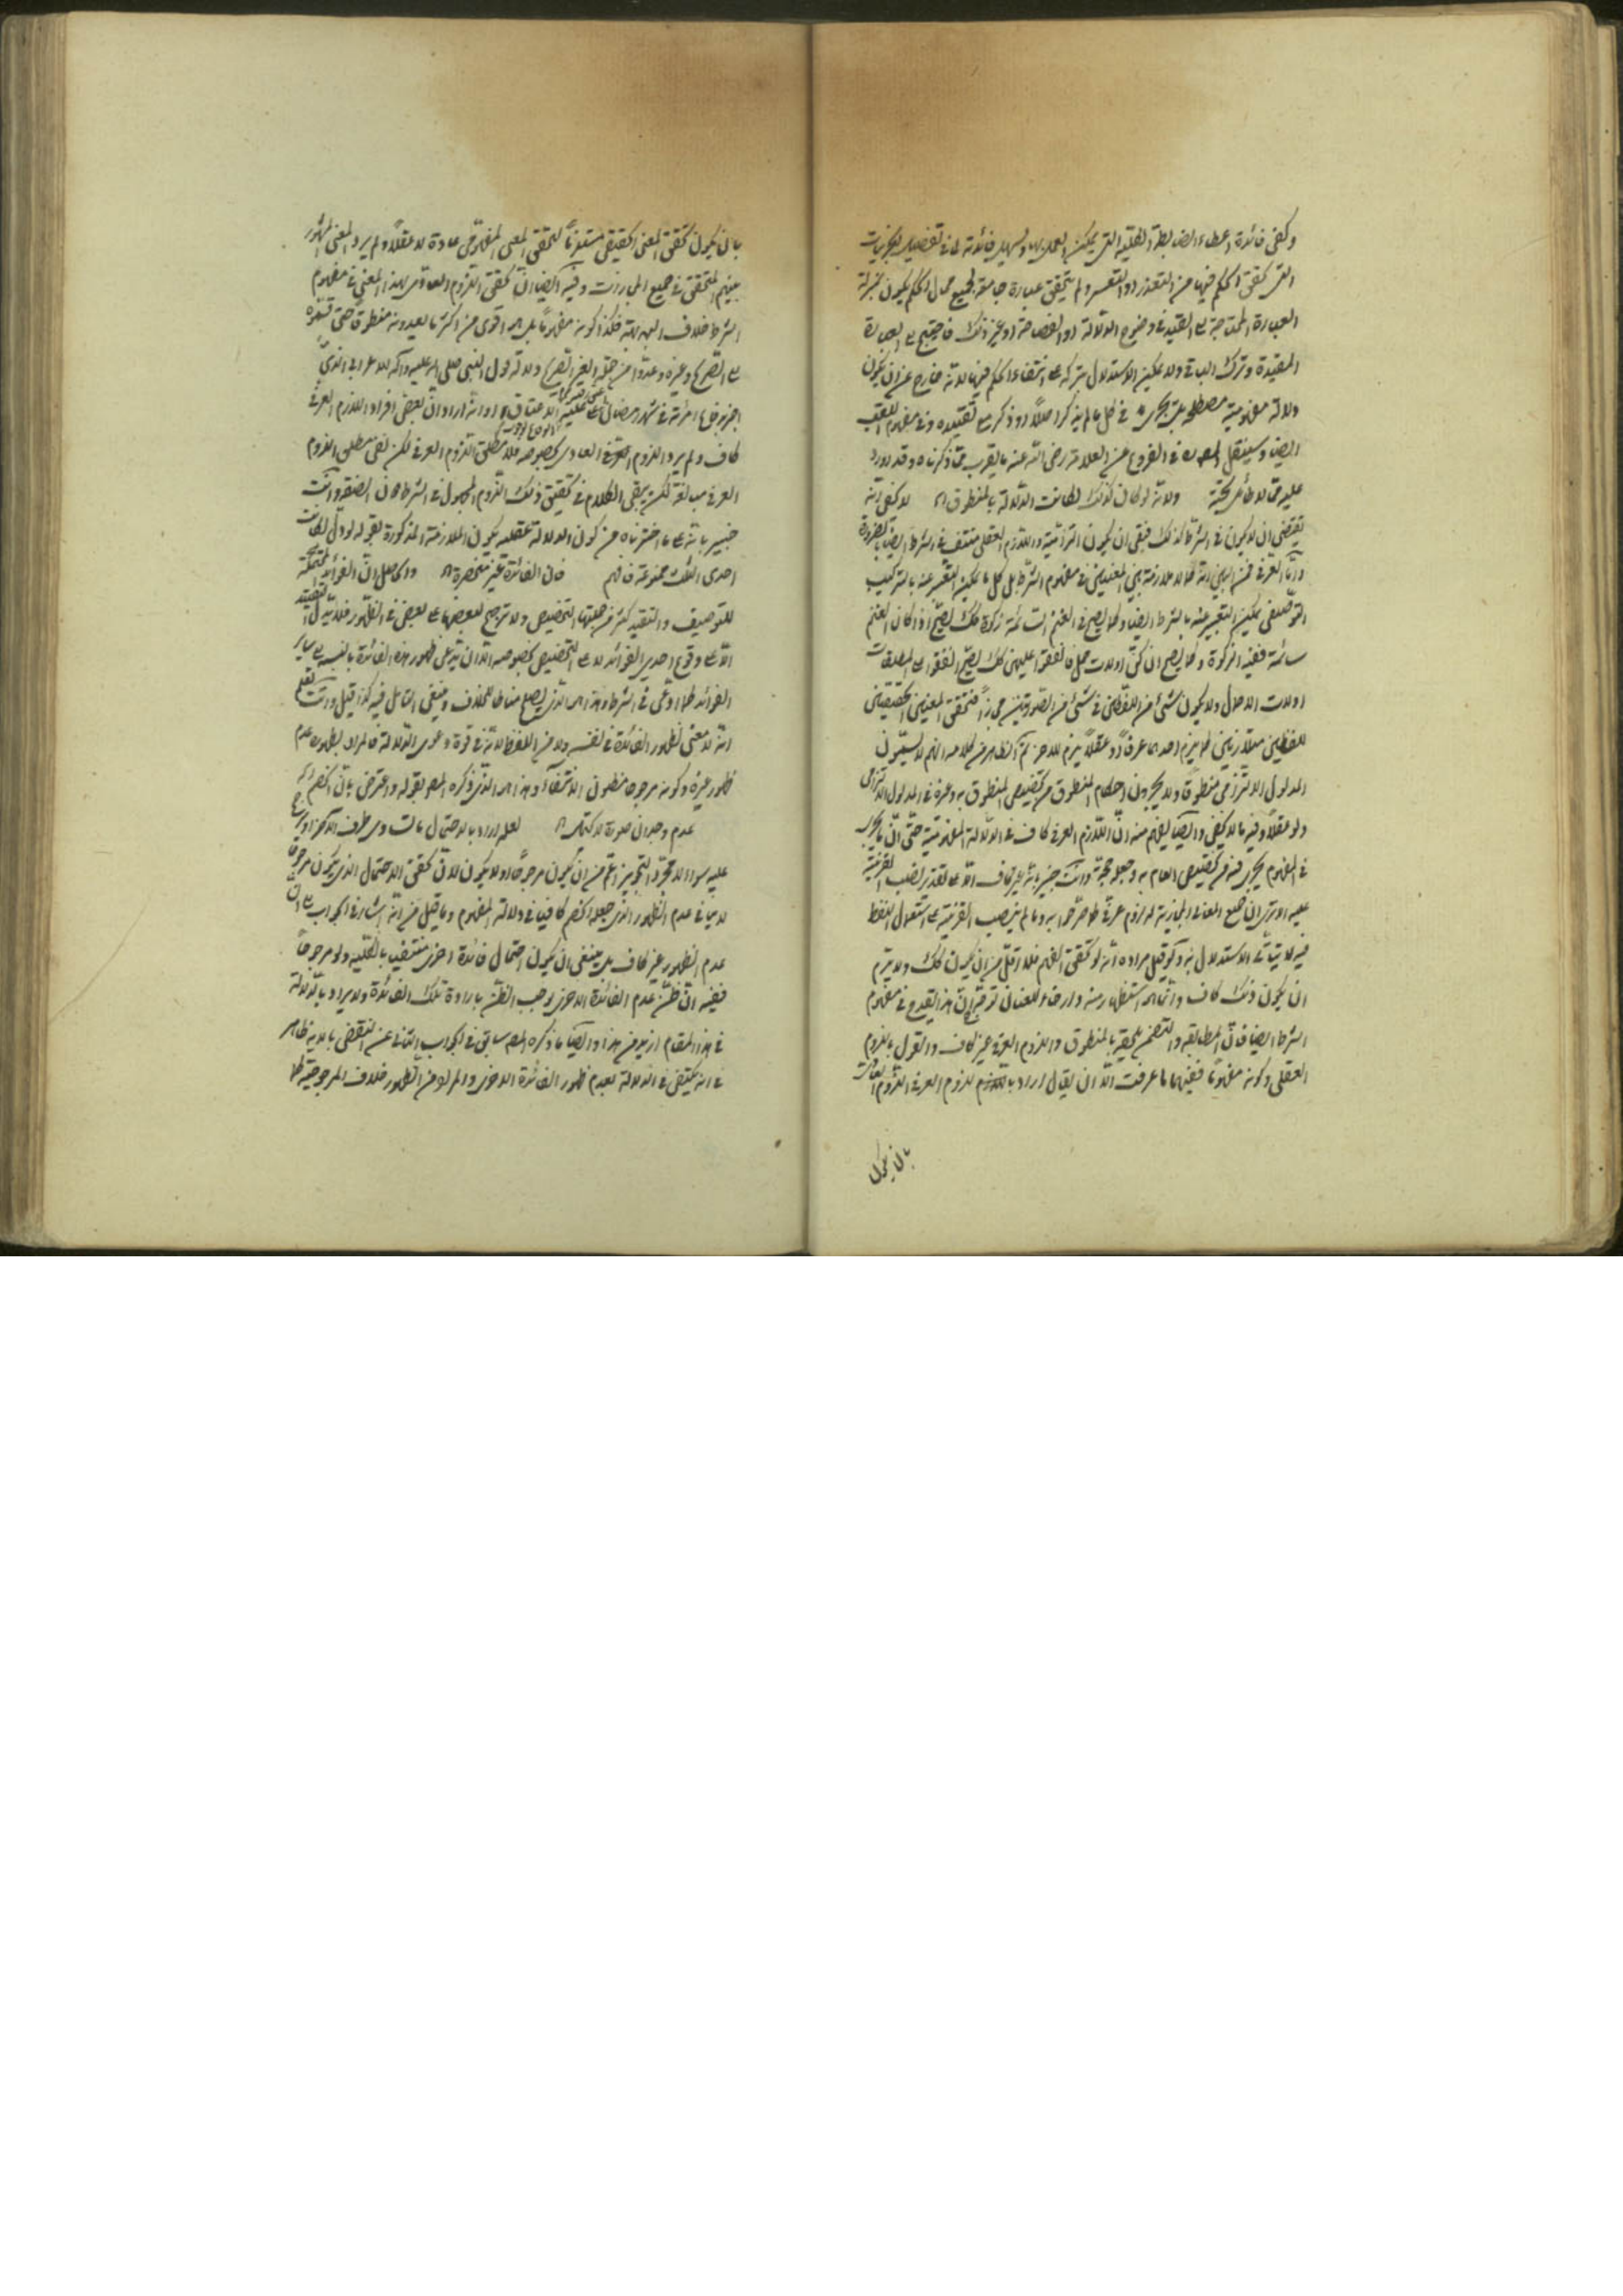 وكفى فائدة اعطاء الضابطة الكلية التى يمكن العمل بها وتسهيل فائدته لما فى تفصيل الجزئيات
التى تحقق الحكم فيها من التعذر او التعسر ولم يتحقق عبارة جامعة لجميع محال الحكم يكون بمنزلة
العبارة المحتاجة الى القيد فى وضوح الدلالة او الفصاحة او غير ذلك فاحتيج الى العبارة
المقيدة وترك الباقى ولا يمكن الاستدلال بتركه على انتفاء الحكم فيها لانه خارج عن ان يكون
دلالة مفهومية مصطلحة بل يجرى فى كل ما لم يذكر اصلا او ذكر مع تقييده وفى مفهوم اللقب
ايضا وسينقل المص ره فى الفروع عن العلامة رضى الله عنه ما يقرب مما ذكرناه وقد اورد
عليه مما لا طائل تحته ولانه لو كان كذلك لكانت الدلالة بالمنطوق لا يخفى انه
يقتضى ان لا يكون فى الشرط كذلك فبقى ان يكون التزامية واللازم العقلى منتف فى الشرط ايضا بالضرورة
واما العرفى فمن البين انه لا ملازمة بين المعنيين فى مفهوم الشرط بل كل ما يمكن التعبير عنه بالتركيب
التوصيفى يمكن التعبير عنه بالشرط ايضا وكما يصح فى الغنم السائمة زكوة كك يصح اذا كان الغنم
سائمة ففيه الزكوة وكما يصح ان كن اولات حمل فانفقوا عليهن كك يصح انفقوا على المطلقات
اولات الاحمال ولا يكون شئ من اللفظين فى شئ من الصورتين مجازا فتحقق المعنيين الحقيقيين
للفظين متلازمين لم يلزم احدهما عرفا او عقلا يلزم للاخر ثم الظاهر من كلامه انهم لا يسمون
المدلول الالتزامى منطوقا ولا يجرون احكام المنطوق من تخصيص المنطوق به وغيره فى المدلول الالتزامى
ولو عقلا وفيه ما لا يخفى وايضا يفهم منه ان اللازم العرفى كاف فى الدلالة المفهومية حتى ان ما يجرى
فى المفهوم يجرى فيه من تخصيص العام به وجعله حجة وانت خبير بانه غير كاف الا على تقدير نصب القرينة
عليه الا ترى ان جميع المعانى المجازية له لزوم عرفى كما صرحوا به وما لم ينصب القرينة على استعمال اللفظ
فيه لا يتأتى الاستدلال به ولو قيل مراده انه لو تحقق الفهم فلا اقل من ان يكون كك ولا يلزم
ان يكون ذلك كاف وانما هو استظهار منه وارخاء للعنان توجه ان هذا يقدح فى مفهوم
الشرط ايضا فان المطابقة والتضمن يلحقه بالمنطوق واللزوم العرفى غير كاف والقول باللزوم
العقلى وكونه مفهوما ففيهما ما عرفت الا ان يقال اراد باللازم للزوم العرفى اللزوم العادى
بان يكون
بان يكون تحقق المعنى الحقيقى مستلزما لتحقق المعنى المفهومى عادة لا عقلا ولم يرد المعنى المشهور
بينهم المتحقق فى جميع المجازات وفيه ايضا ان تحقق اللزوم العادى بهذا المعنى فى مفهوم
الشرط خلاف البداهة فكذا كونه مفهوما بل هو اقوى من اكثر ما يعدونه منطوقا حتى قسموه
الى الصريح وغيره وعدوا من جملة الغير الصريح دلالة قول النبى صلى الله عليه وآله للاعرابى الذى
اخبر وقاع امرأته فى شهر رمضان على علية الاعتاق او انه اراد ان بعض افراد اللازم العرفى
كاف ولم يرد اللزوم العرفى العادى بخصوصه فلا مطلق اللزوم العرفى لكن نفى مطلق اللزوم
العرفى مبالغة لكن يبقى الكلام فى تحقيق ذلك اللزوم المجهول فى الشرط دون الصفة وانت
خبير بانه على ما اخترناه من كون الدلالة عقلية يكون الملازمة المذكورة بقوله لو دل لكانت
احدى الثلث ممنوعة فافهم فان الفائدة غير منحصرة والحاصل ان الفوائد المحتملة
للتوصيف والتقييد كثيرة من جملتها التخصيص ولا ترجيح لبعضها على بعض فى الظهور فلا يدل التقييد
الا على وقوع احدى الفوائد لا على التخصيص بخصوصه الا ان يدعى ظهور هذه الفائدة بالنسبة الى ساير
الفوائد كما ادعى فى الشرط وهذا هو الذى يصلح مناطا للخلاف وينبغى التأمل فيه كذا قيل وانت تعلم
انه لا معنى لظهور الفائدة فى نفسه ولا من اللفظ لانه فى قوة دعوى الدلالة فالمراد بظهوره عدم
ظهور غيره وكونه مرجوحا مظنون الانتفاء وهذا هو الذى ذكره المص بقوله واعترض بان الخصم
عدم وجدان صورة لا يحتمل لعله اراد بالاحتمال ما تساوى طرف الاخر او رجح
عليه سواء لا مجرد التجويز اعم من ان يكون مرجوحا او لا يكون لان تحقق الاحتمال الذى يكون مرجوحا
لا ينافى عدم الظهور الذى جعله الخصم كافيا فى دلالة المفهوم وما قيل من انه اشار فى الجواب الى ان
عدم الظهور غير كاف بل ينبغى ان يكون احتمال فائدة اخرى منتفيا بالكلية ولو مرجوحا
ففيه ان ظن عدم الفائدة الاخرى يوجب الظن بارادة تلك الفائدة ولا يراد بالدلالة
فى هذا المقام ازيد من هذا وايضا ما ذكره المص سابق فى الجواب الثانى عن النقض بالاية ظاهر
فى انه يكتفى فى الدلالة بعدم ظهور الفائدة الاخرى والمراد من الظهور خلاف المرجوحية كما